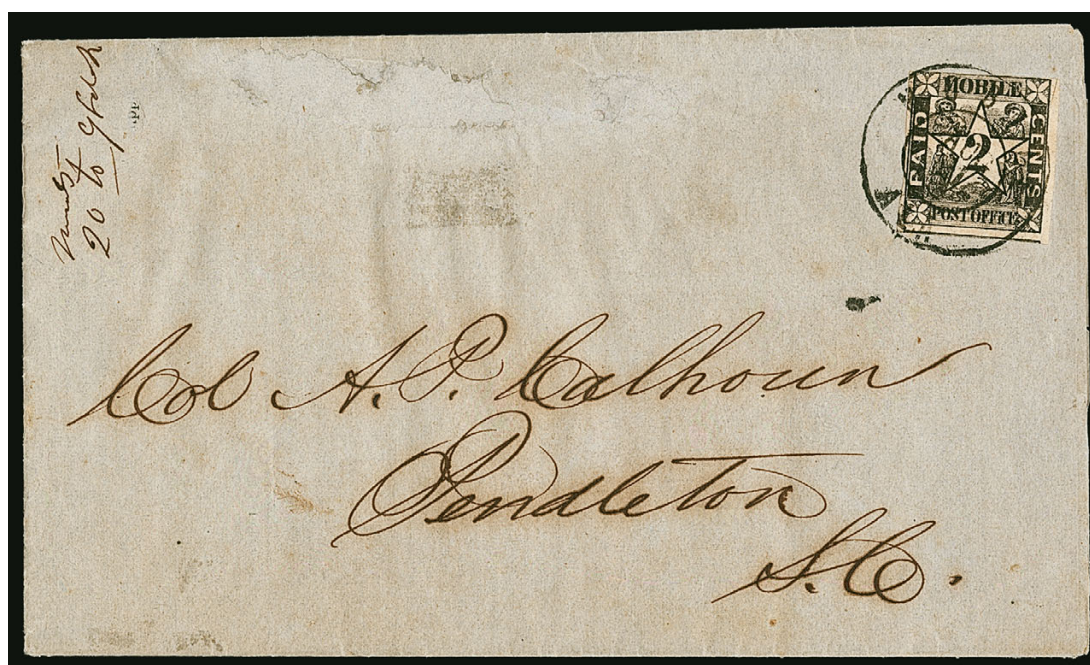 20 to
MOBILE
PAID
2
CENTS
POST OFFICE
Col A. P. Calhoun
Pendleton
S. C.